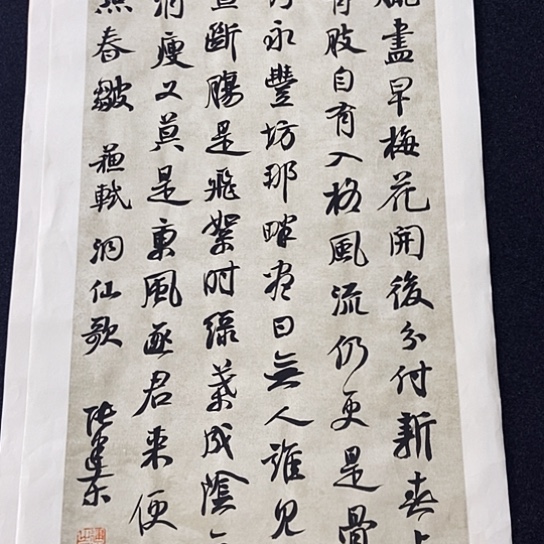 盡早梅花開後分付新春
肢自有入格風流仍更是骨
永豐坊那畔尽日無人誰見
斷腸是飛絮时綠葉成陰
消瘦又莫是東風逐君来便
春皺 蘇軾 洞仙歌